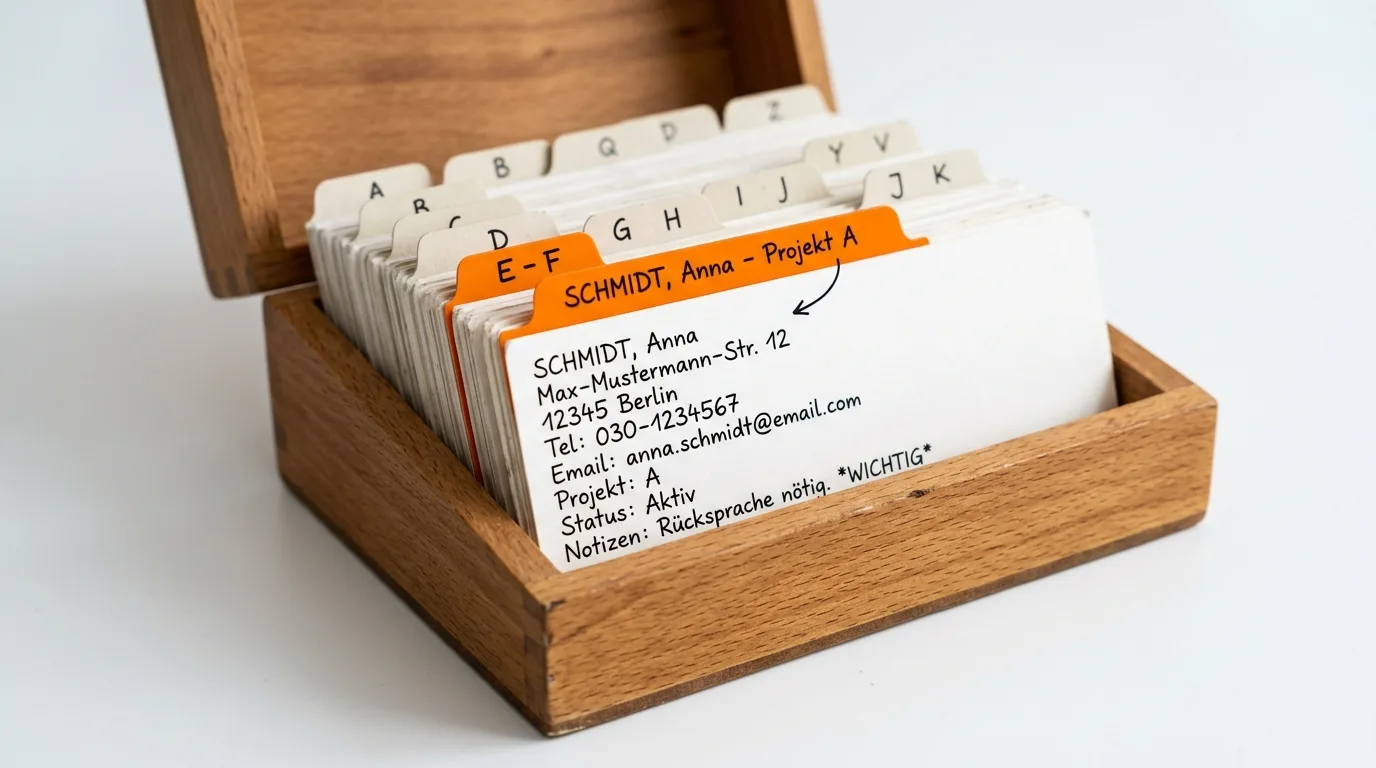 A
B
Q D
Z
B
C
D
G H
I J
Y V
J K
E-F
SCHMIDT, Anna - Projekt A
SCHMIDT, Anna
Max-Mustermann-Str. 12
12345 Berlin
Tel: 030-1234567
Email: anna.schmidt@email.com
Projekt: A
Status: Aktiv
Notizen: Rücksprache nötig. *WICHTIG*